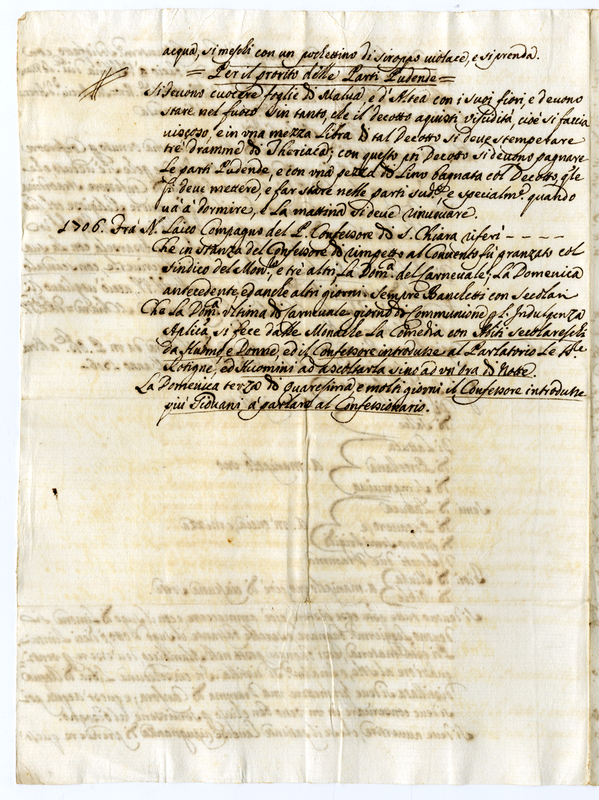 acqua, si meschi con un pochettino di siroppo violaceo, e si prenda.
= Per il prorito delle Parti Pudende =
Si devono cuocere foglie di Malva, e d'Altea con i suoi fiori, e devono
stare nel fuoco sin tanto, che il decotto aquisti viscidità, cioè si faccia
viscoso, e in una mezza Libra di tal Decotto si deve stemperare
trè dramme di Theriaca; con questo Decotto si devono bagnare
Le parti Pudende, e con una pezza di Lino bagnata col Decotto, q.le
si deve mettere, e far stare nelle parti sud.e, e specialm.e quando
và à dormire, e La mattina si deve rinuovare.
1706. Frà N. Laico Compagno del P. Confessore di S. Chiara riferì - - - -
Che in stanza del Confessore di rimpetto al Convento fù pranzato col
Sindico del Mon.o, e trè altri La Dom.a del Carnevale; La Domenica
antecedente, ed anche altri giorni. Sempre Banchetti con Secolari
Che La Dom.a ultima di Carnevale giorno di Communione p. L'Indulgenza
Aplica si fece dalle Monache La Comedia con Abiti secolareschi
da Huomo e Donna, ed il Confessore introdusse al Parlatorio Le
ed Huomini ad ascoltarla sino ad un'Ora di Notte.
La Domenica terza di Quaresima e molti giorni il Confessore introdusse
più à parlare al Confessionario.